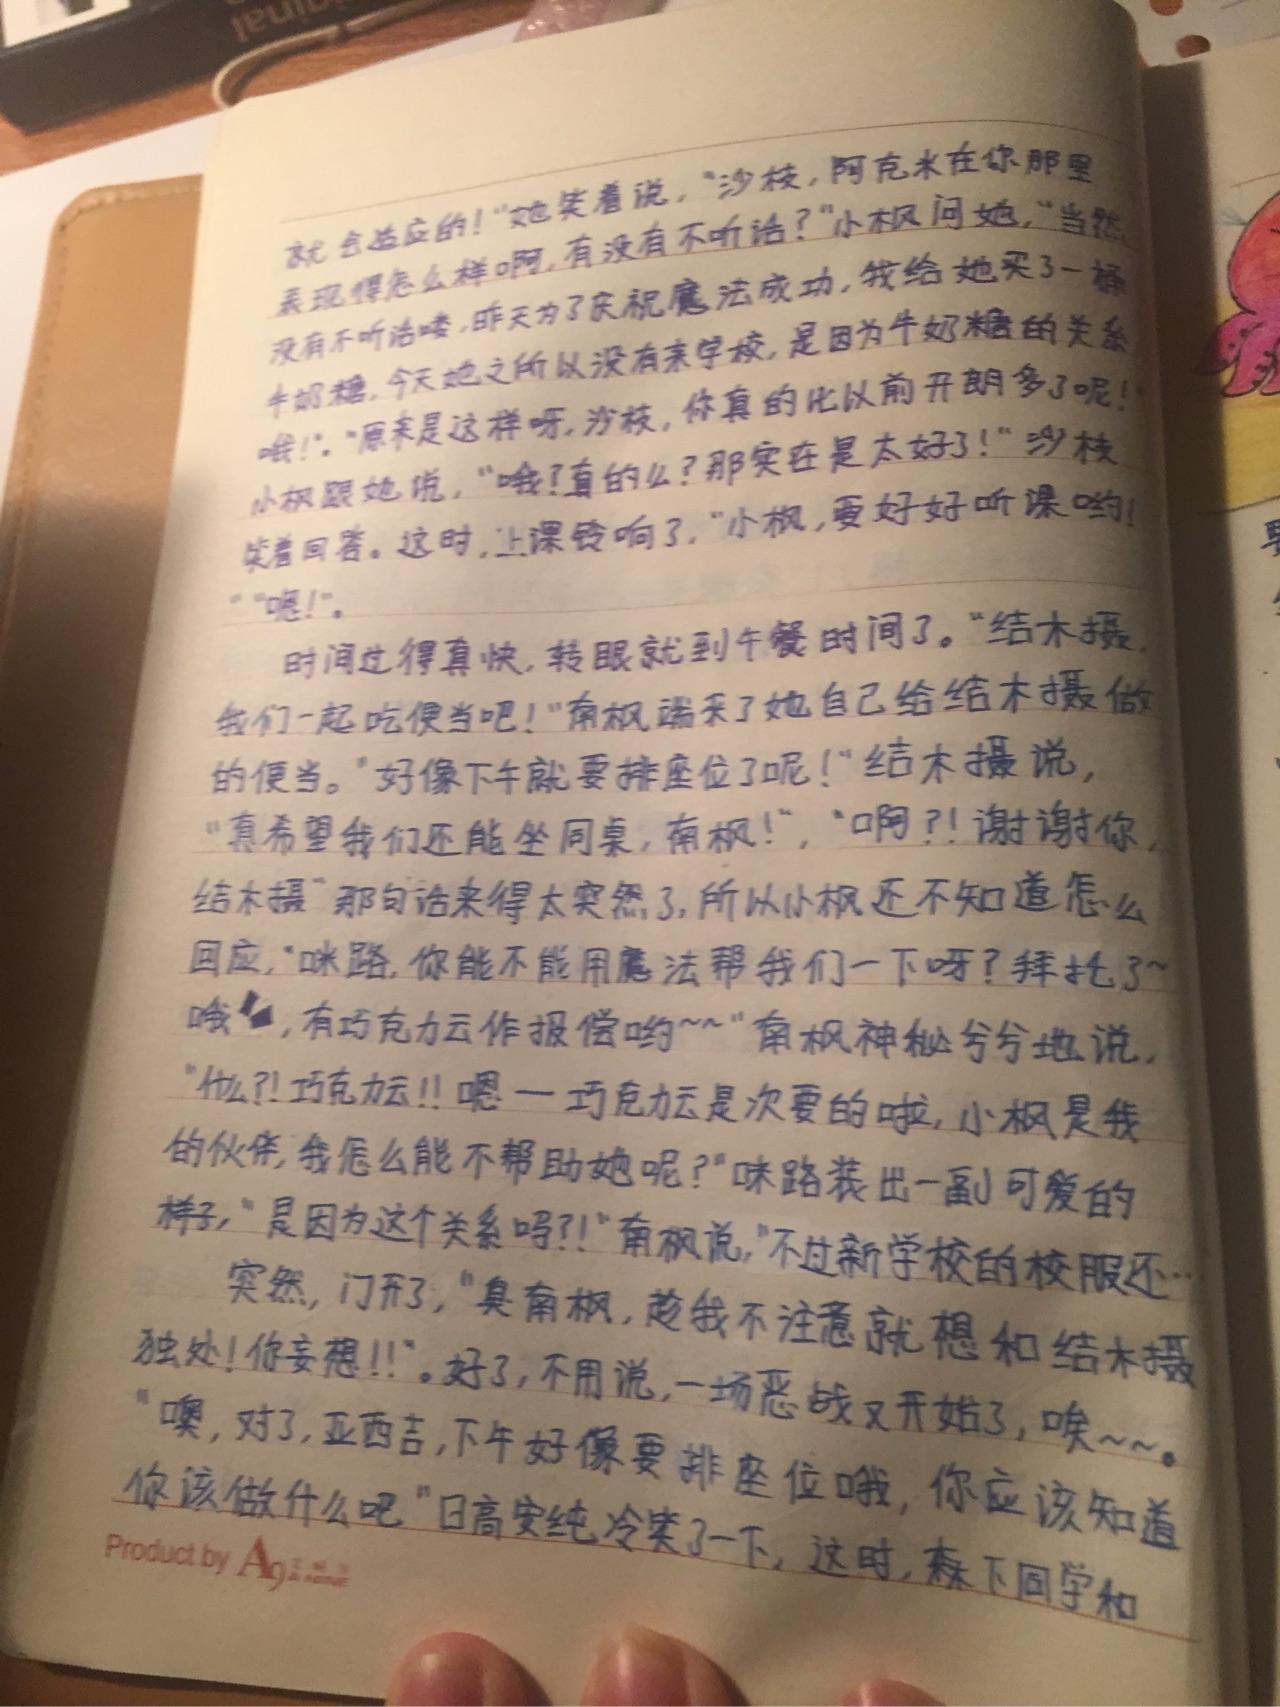 iginal
就会适应的！”她笑着说，“沙枝，阿克米在你那里
表现得怎么样啊，有没有不听话？”小枫问她，“当然
没有不听话喽，昨天为了庆祝魔法成功，我给她买了一桶
牛奶糖，今天她之所以没有来学校，是因为牛奶糖的关系
哦！”。“原来是这样呀，沙枝，你真的比以前开朗多了呢！”
小枫跟她说，“哦？真的么？那实在是太好了！”沙枝
笑着回答。这时，上课铃响了，“小枫，要好好听课哟！
” “嗯！”。
时间过得真快，转眼就到午餐时间了。“结木摄，
我们一起吃便当吧！”南枫端来了她自己给结木摄做
的便当。“好像下午就要排座位了呢！”结木摄说，
“真希望我们还能坐同桌，南枫！”，“啊？！谢谢你，
结木摄”那句话来得太突然了，所以小枫还不知道怎么
回应，“咪路，你能不能用魔法帮我们一下呀？拜托了~
哦，有巧克力云作报偿哟~~”南枫神秘兮兮地说，
“什么？！巧克力云！！嗯一巧克力云是次要的啦，小枫是我
的伙伴，我怎么能不帮助她呢？”咪路装出一副可爱的
样子，“是因为这个关系吗？！”南枫说，“不过新学校的校服还…
突然，门开了，“臭南枫，趁我不注意就想和结木摄
独处！你妄想！！”。好了，不用说，一场恶战又开始了，唉~~~。
“噢，对了，亚西吉，下午好像要排座位哦，你应该知道
你该做什么吧”日高安纯冷笑了一下，这时，森下同学和
Product by A9